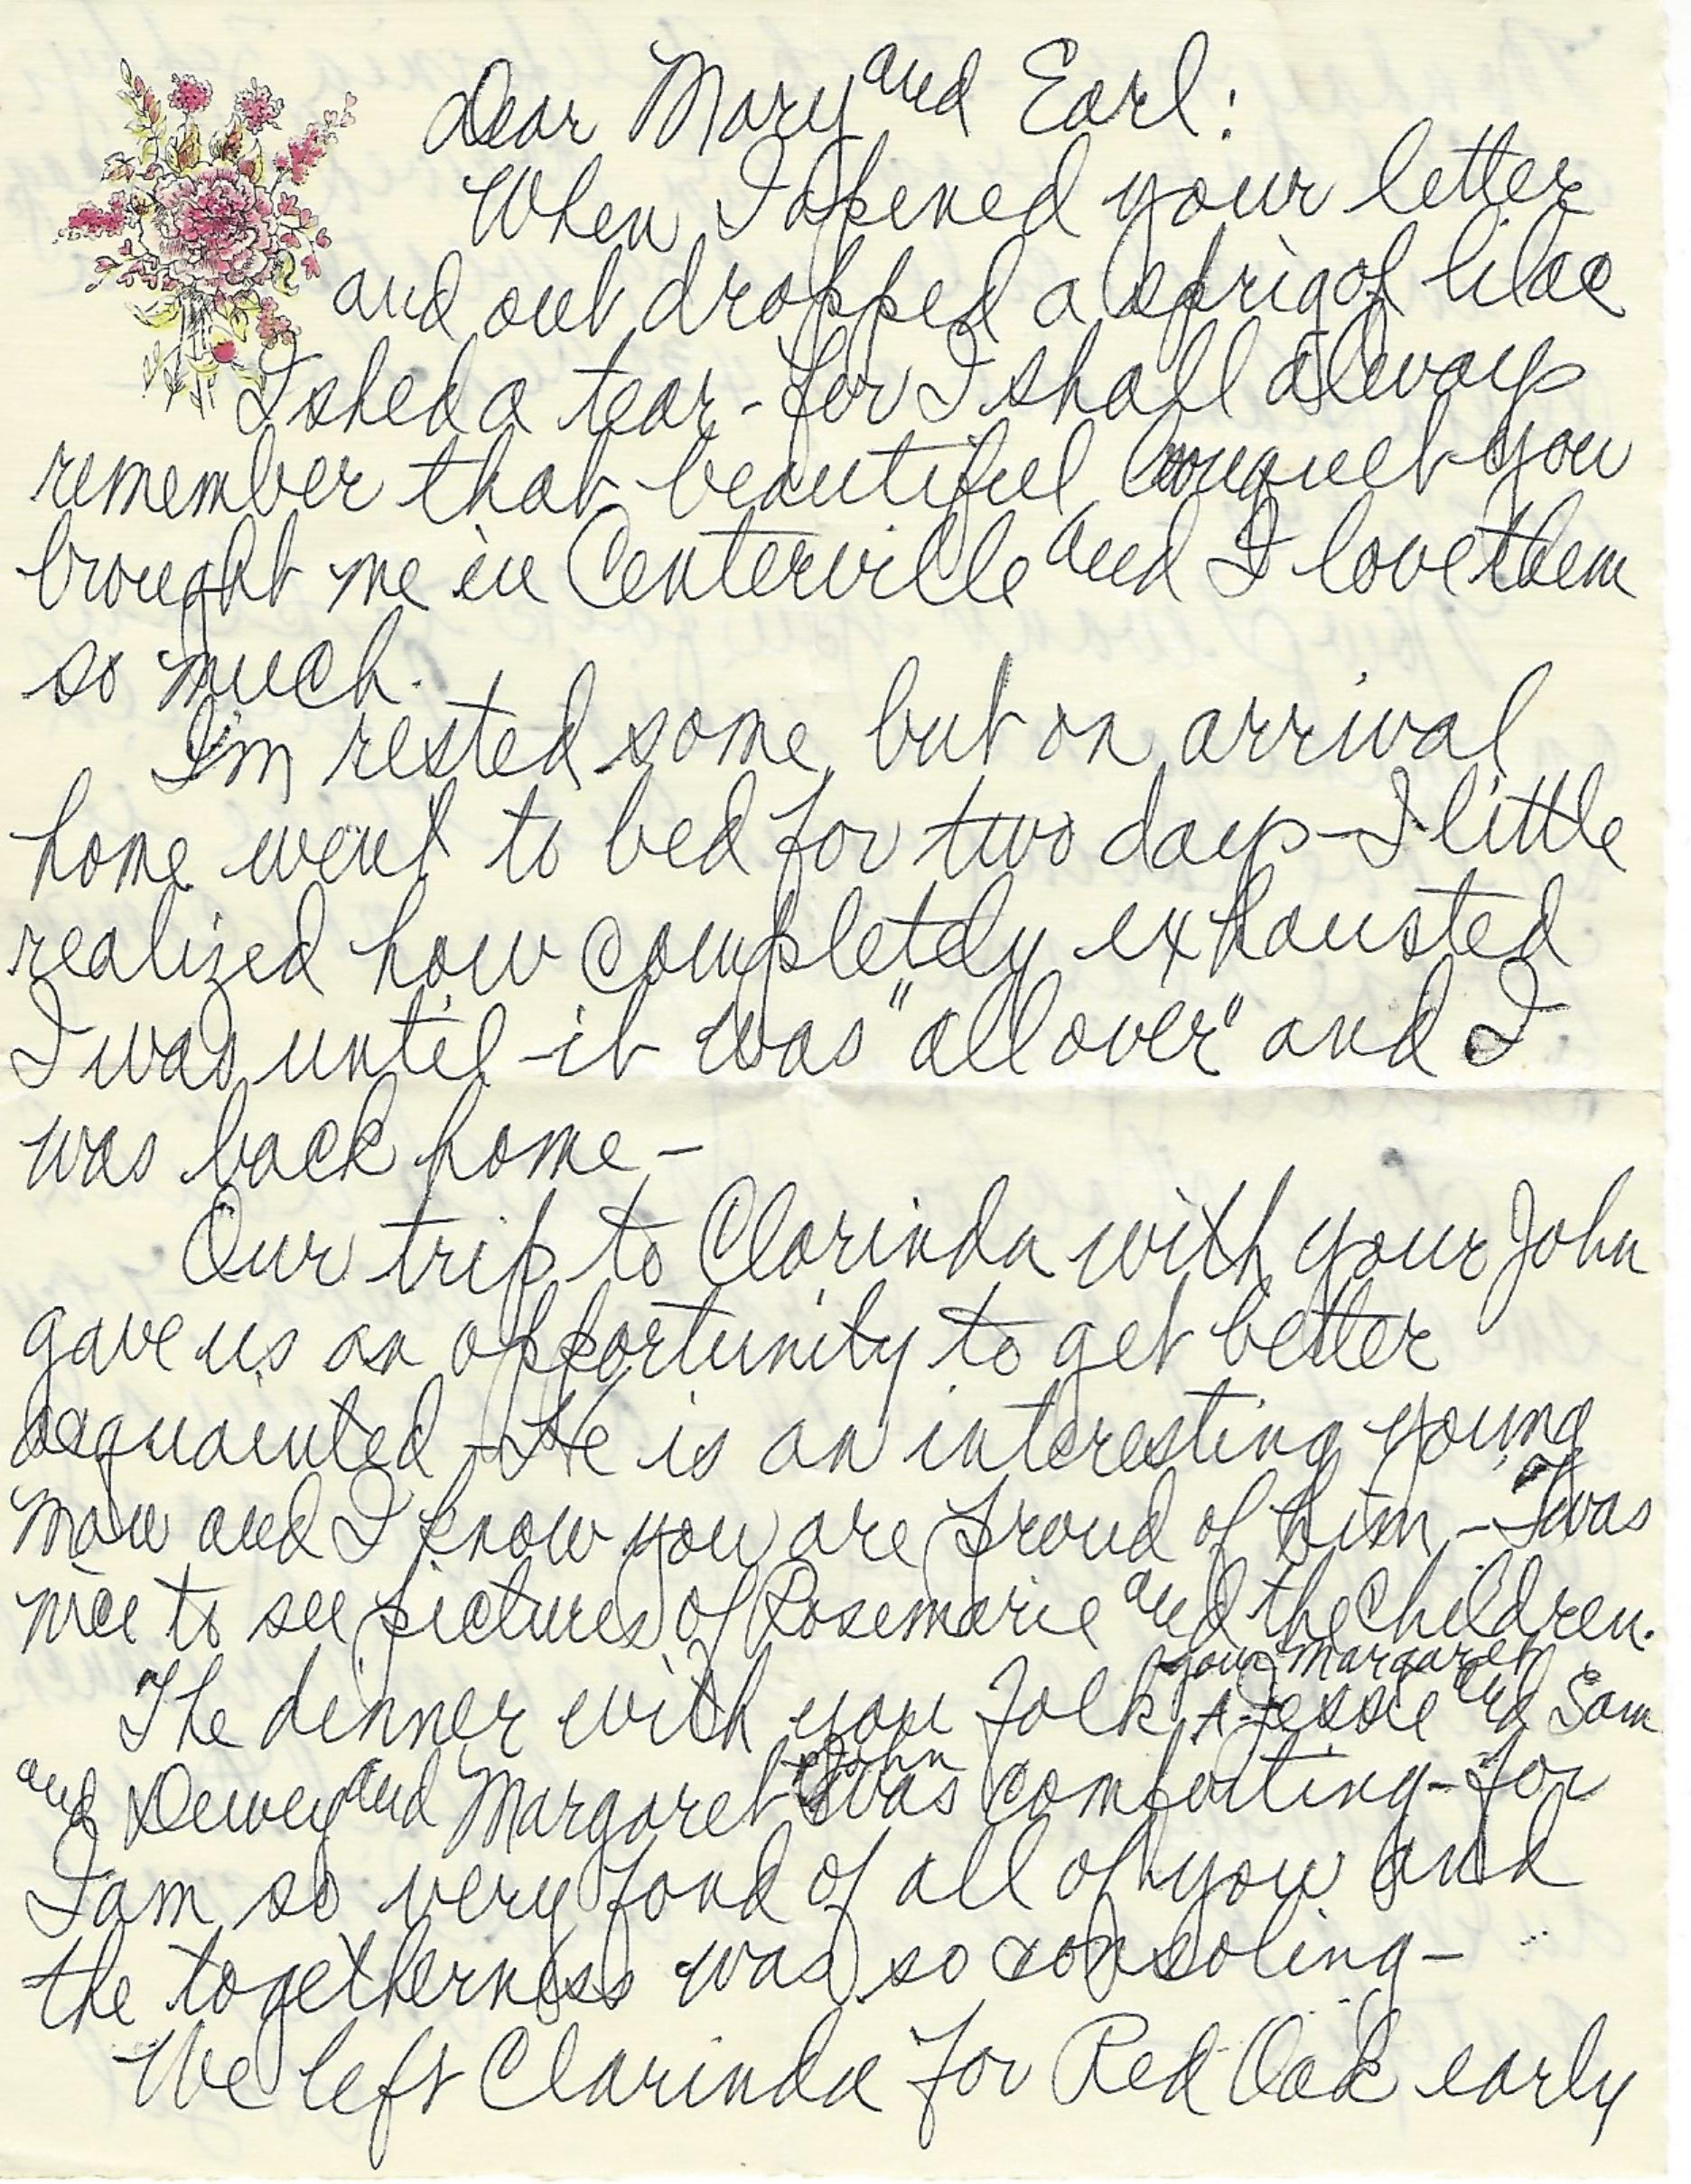 Dear Mary and Earl:
When I opened your letter
and out dropped a sprig of lilac
I shed a tear - for I shall always
remember that beautiful bouquet you
brought me in Centerville and I love them
so much.
I'm rested some but on arrival
home went to bed for two days - I little
realized how completely exhausted
I was until it was "all over" and I
was back home -
Our trip to Clarinda with your John
gave us an opportunity to get better
acquainted - He is an interesting young
man and I know you are proud of him - 'Twas
nice to see pictures of Rosemarie and the children.
your Margaret
The dinner with you folk, + Jessie and Sam
John
and Dewey and Margaret was comforting - for
I am so very fond of all of you and
the togetherness was so consoling -
We left Clarinda for Red Oak early